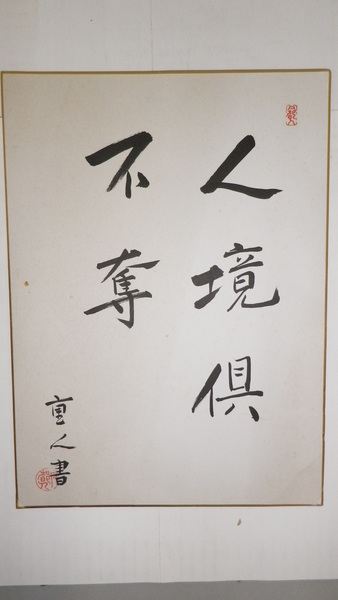 人境俱
不奪
直人書